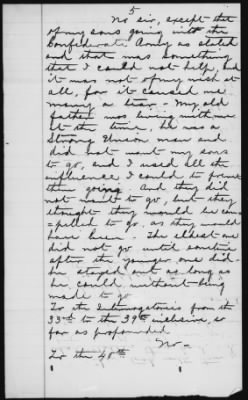 5
No sir, except that
of my sons going with the
Confederate Army as stated
and that was something
that I could not help, and
it was not of my wish at
all, for it caused me
many a tear - My old
father was living with me
at the time, he was a
strong Union man and
did not want my sons
to go, and I used all the
influence I could to prevent
their going. And they did
not want to go, but they
thought they would be com
=pelled to go. as they would
have been. The eldest one
did not go until sometime
after the younger one did-
he stayed out as long as
he could without being
made to go
To the Interrogatories from the
33rd to the 39th inclusive, so
far as propounded
No-
To the 40th